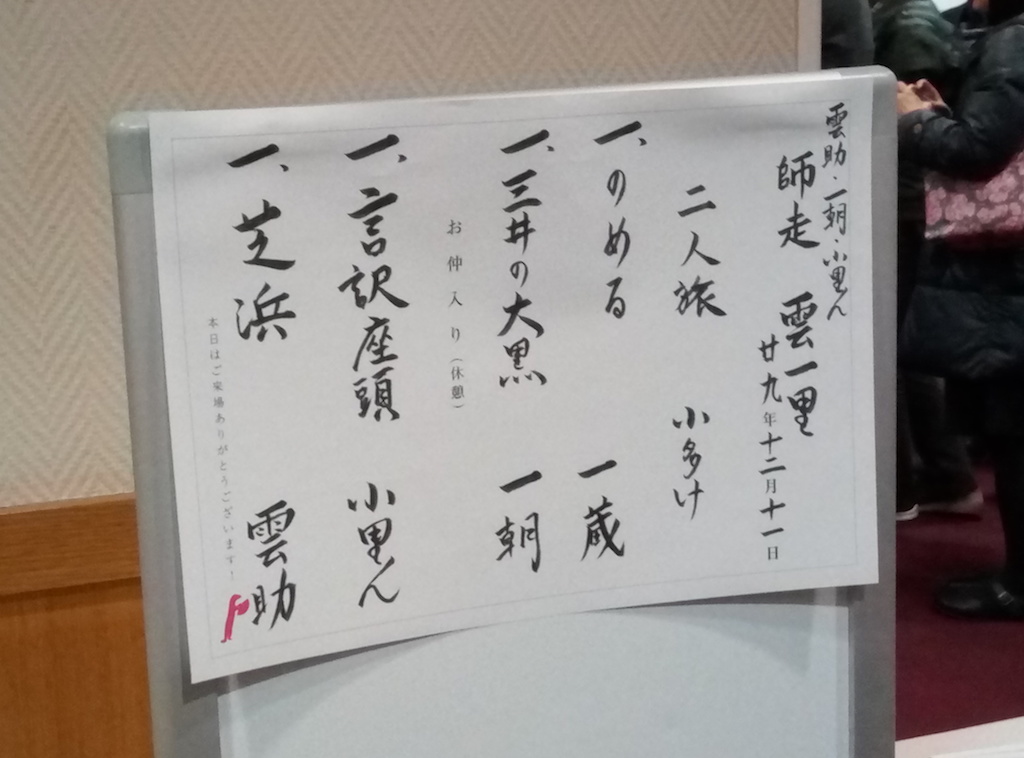 雲助・一朝・小里ん
師走 雲一里
廿九年十二月十一日
二人旅 小多け
一、のめる 一蔵
一、三井の大黒 一朝
お仲入り（休憩）
一、言訳座頭 小里ん
一、芝浜 雲助
本日はご来場ありがとうございます！